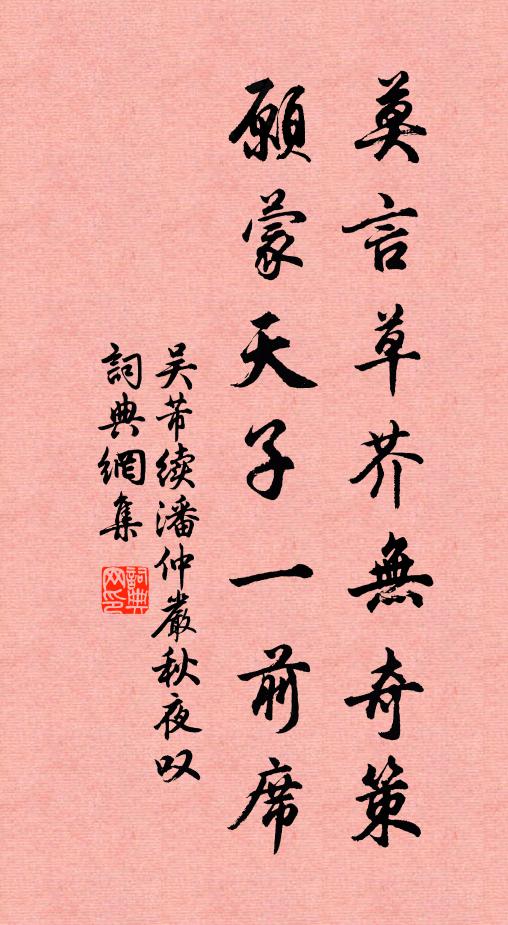 莫言草芥無奇策
願蒙天子一前席
吴芾续潘仲嚴秋夜叹
詞典網集
詞典网印